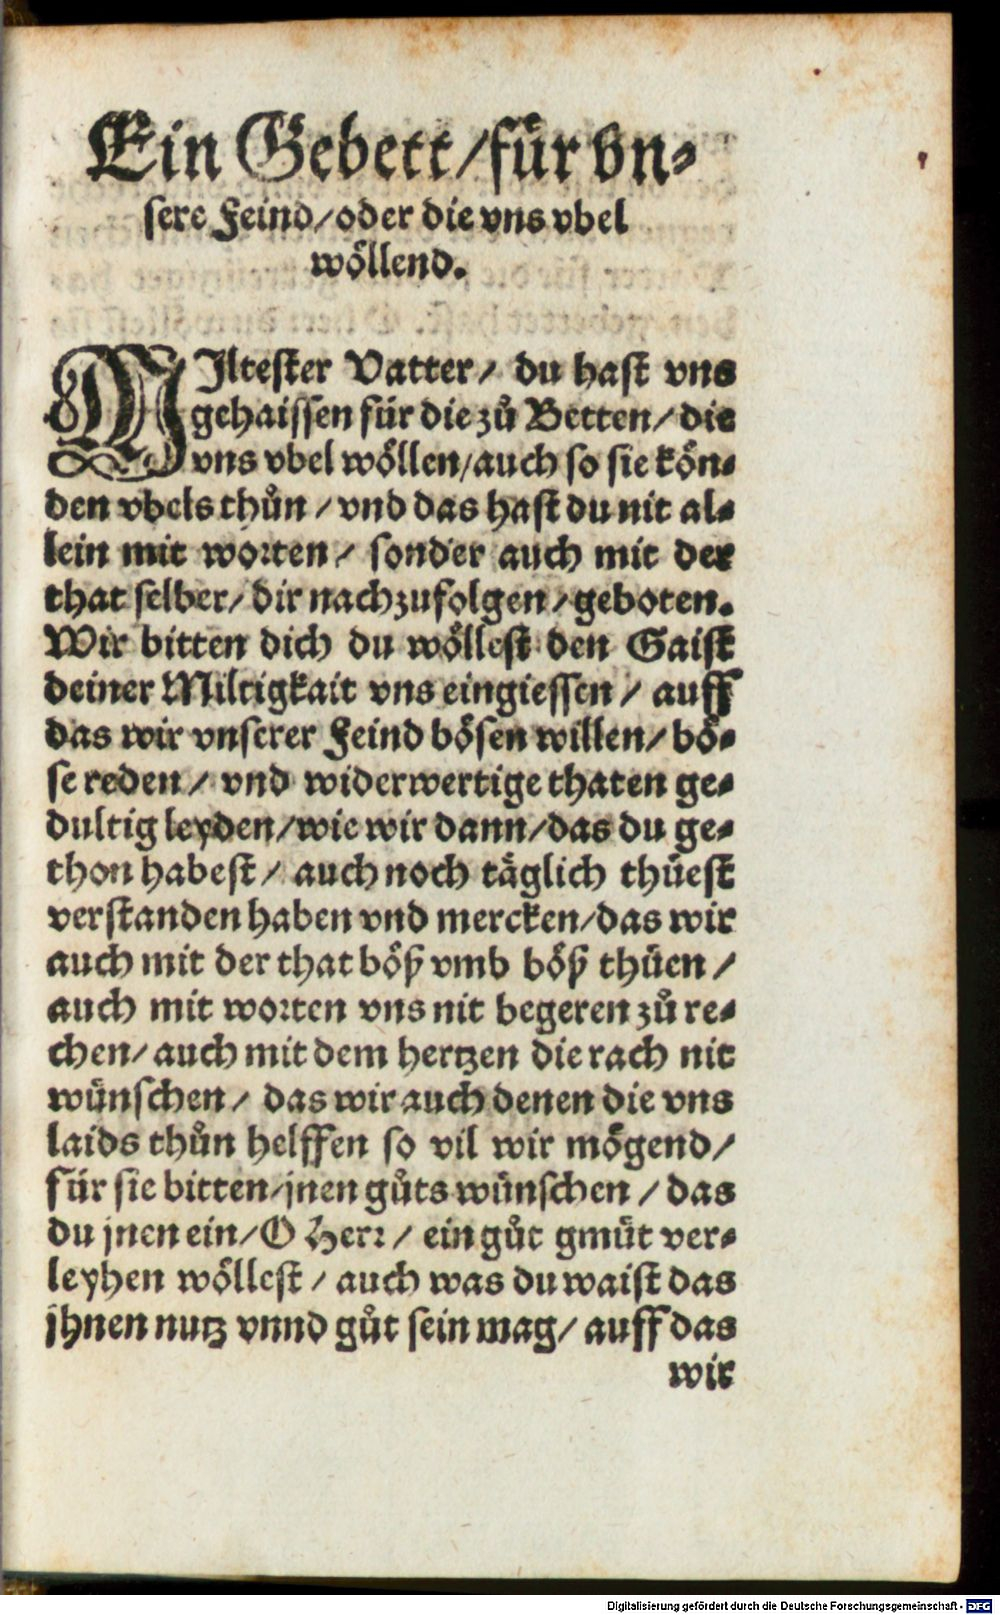 Ein Gebett/für vn⸗
sere Feind/oder die vns vbel
wöllend.
MIltester Vatter/ du hast vns
gehaissen für die zů Betten/die
vns vbel wöllen/auch so sie kön⸗
den vbels thůn/vnd das hast du nit al⸗
lein mit worten/ sonder auch mit der
that selber/dir nachzufolgen/geboten.
Wir bitten dich du wöllest den Gaist
deiner Miltigkait vns eingiessen/ auff
das wir vnserer Feind bösen willen/bö⸗
se reden/ vnd widerwertige thaten ge⸗
dultig leyden/wie wir dann/das du ge⸗
thon habest/ auch noch täglich thüest
verstanden haben vnd mercken/das wir
auch mit der that böß vmb böß thüen/
auch mit worten vns nit begeren zů re⸗
chen/auch mit dem hertzen die rach nit
wünschen/ das wir auch denen die vns
laids thůn helffen so vil wir mögend/
für sie bitten/jnen gůts wünschen/das
du jnen ein/O Herr/ ein gůt gmüt ver⸗
leyhen wöllest/ auch was du waist das
jhnen nutz vnnd gůt sein mag/ auff das
wir
Digitalisierung gefördert durch die Deutsche Forschungsgemeinschaft - DFG